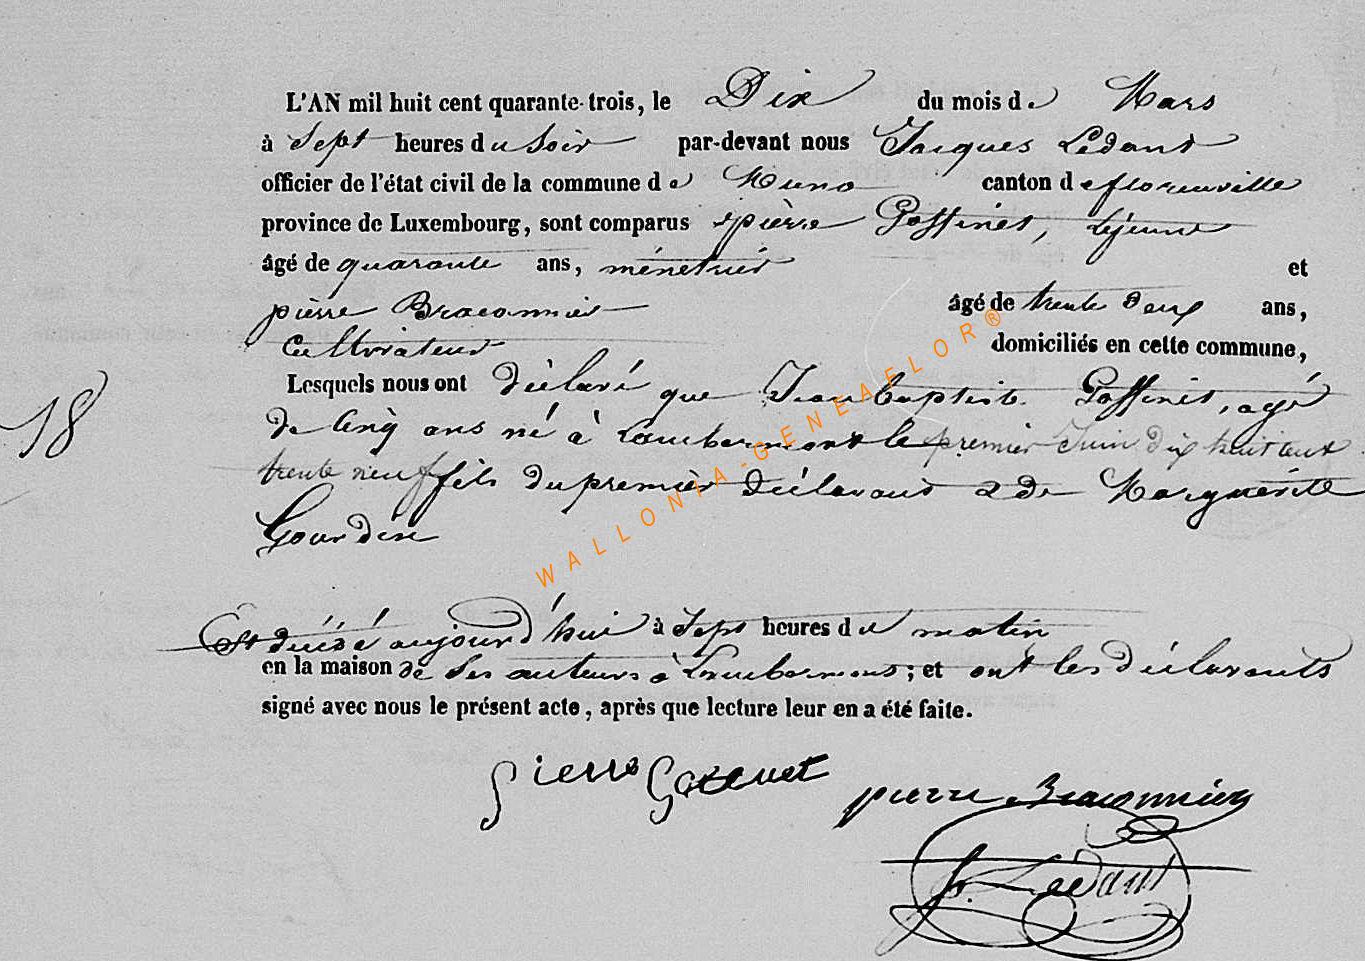 L'AN mil huit cent quarante-trois, le Dix du mois de Mars
à Sept heures du Soir par-devant nous Jacques Ledant
officier de l'état civil de la commune de Muno canton de florenville
province de Luxembourg, sont comparus pièrre Goffinet, Lejeune
âgé de quarante ans, ménetrier et
pièrre Braconnier âgé de trente deux ans,
Cultivateur domiciliés en cette commune,
Lesquels nous ont déclaré que Jean baptiste Goffinet, agé
18
de Cinq ans né à Lambermont le premier Juin dix huit cent
trente neuf fils du premièr déclarant & de Marguerite
Gourdin
WALLONIA-GENEAFLOR®
Est décédé aujourd'hui à Sept heures du matin
en la maison de Ses auteurs à Lambermont; et ont les déclarants
signé avec nous le présent acte, après que lecture leur en a été faite.
pierre Goffinet
pierre Braconnier
J. Ledant